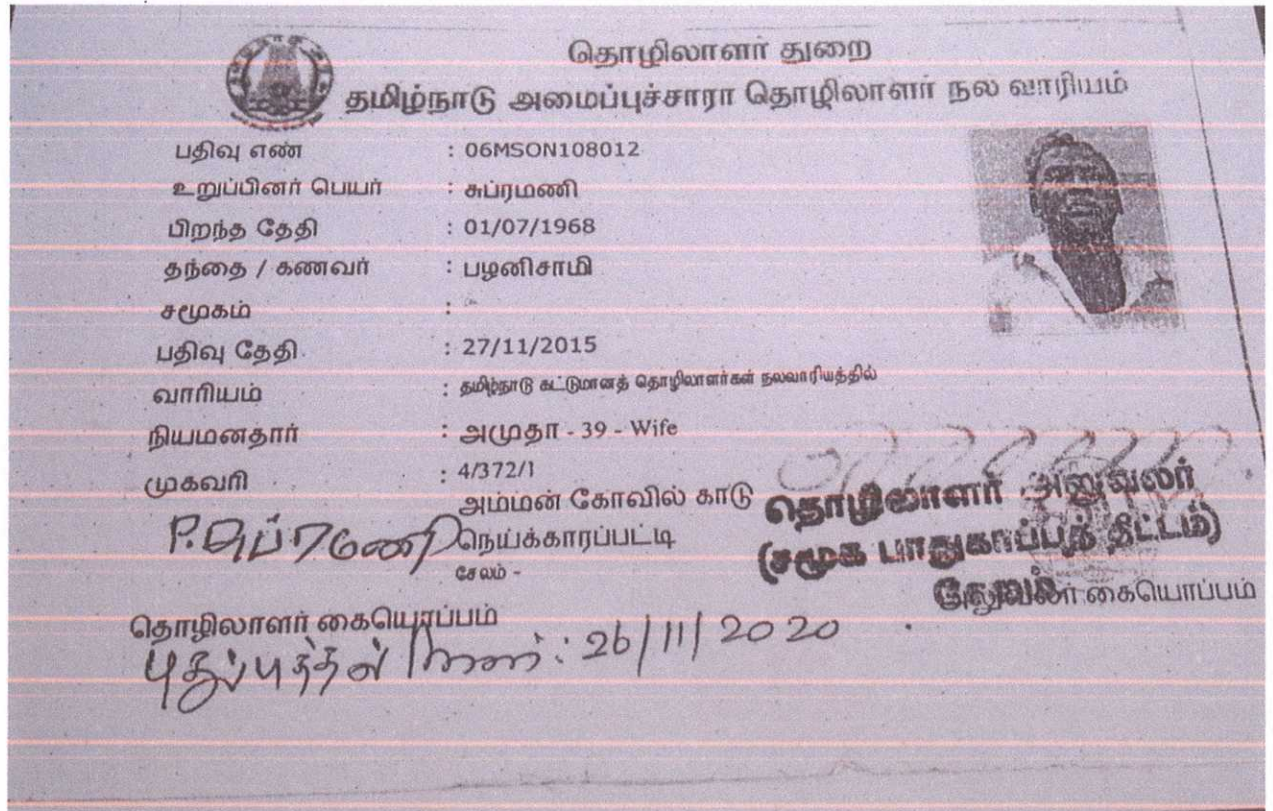 தொழிலாளர் துறை
தமிழ்நாடு அமைப்புச்சாரா தொழிலாளர் நல வாரியம்
பதிவு எண் : 06MSON108012
உறுப்பினர் பெயர் : சுப்ரமணி
பிறந்த தேதி : 01/07/1968
தந்தை / கணவர் : பழனிசாமி
சமூகம் :
பதிவு தேதி : 27/11/2015
வாரியம் : தமிழ்நாடு கட்டுமானத் தொழிலாளர்கள் நலவாரியத்தில்
நியமனதார் : அமுதா - 39 - Wife
முகவரி : 4/372/1
அம்மன் கோவில் காடு
நெய்க்காரப்பட்டி
சேலம் -
P.சுப்ரமணி
தொழிலாளர் அலுவலர்
(சமூக பாதுகாப்புத் திட்டம்)
சேலம்
தொழிலாளர் கையொப்பம்
அலுவலர் கையொப்பம்
புதுப்பித்தல் நாள்: 26/11/2020